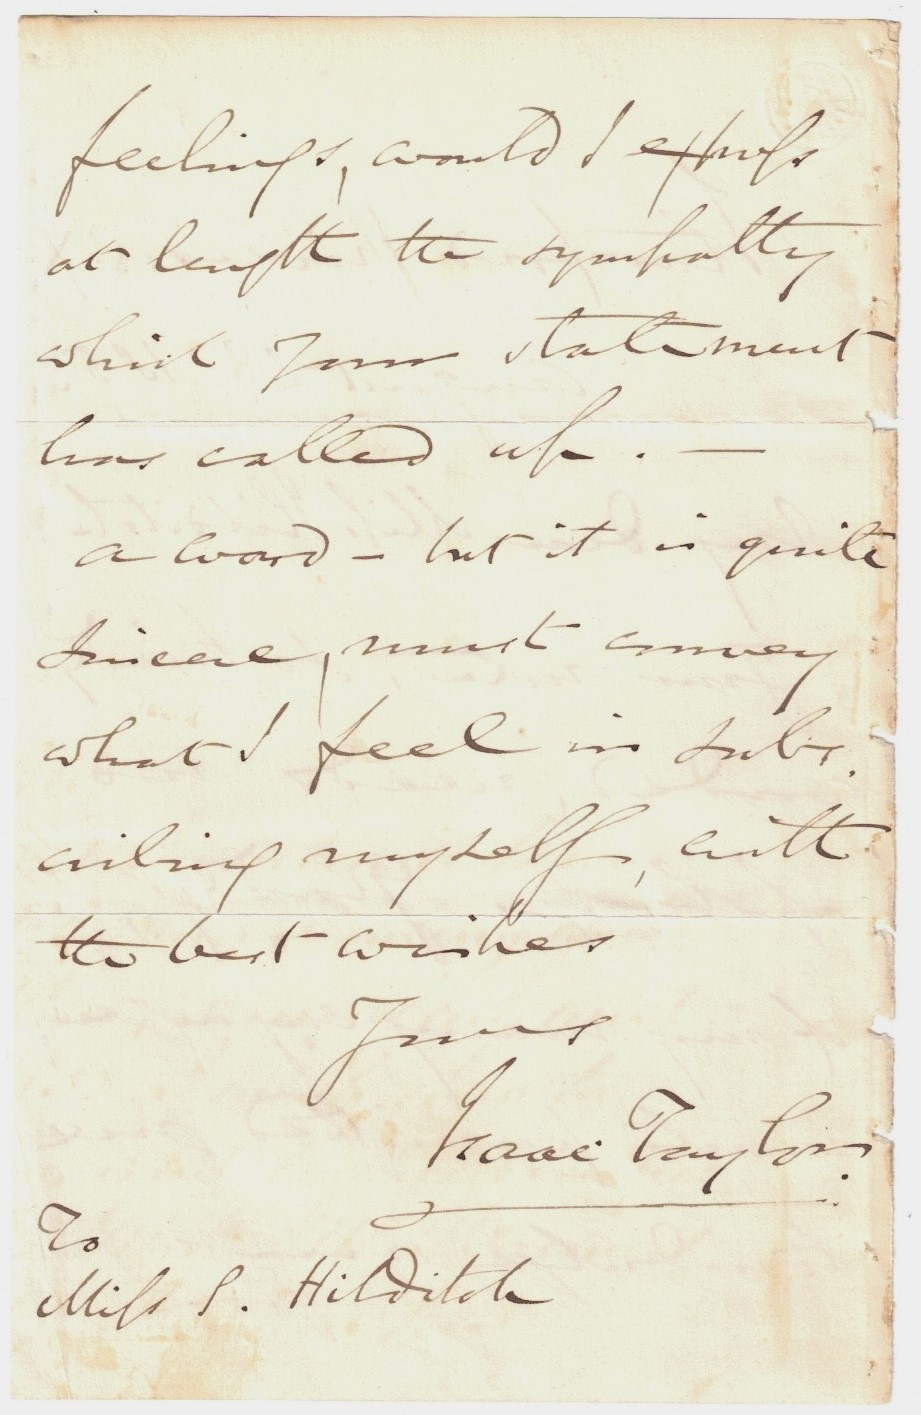 feelings, would I express
at length the sympathy
which your statement
has called up. —
a word – but it is quite
sincere, must convey
what I feel in subs.
cribing myself, with
the best wishes
Yours
Isaac Taylor.
To
Miss S. Hilditch